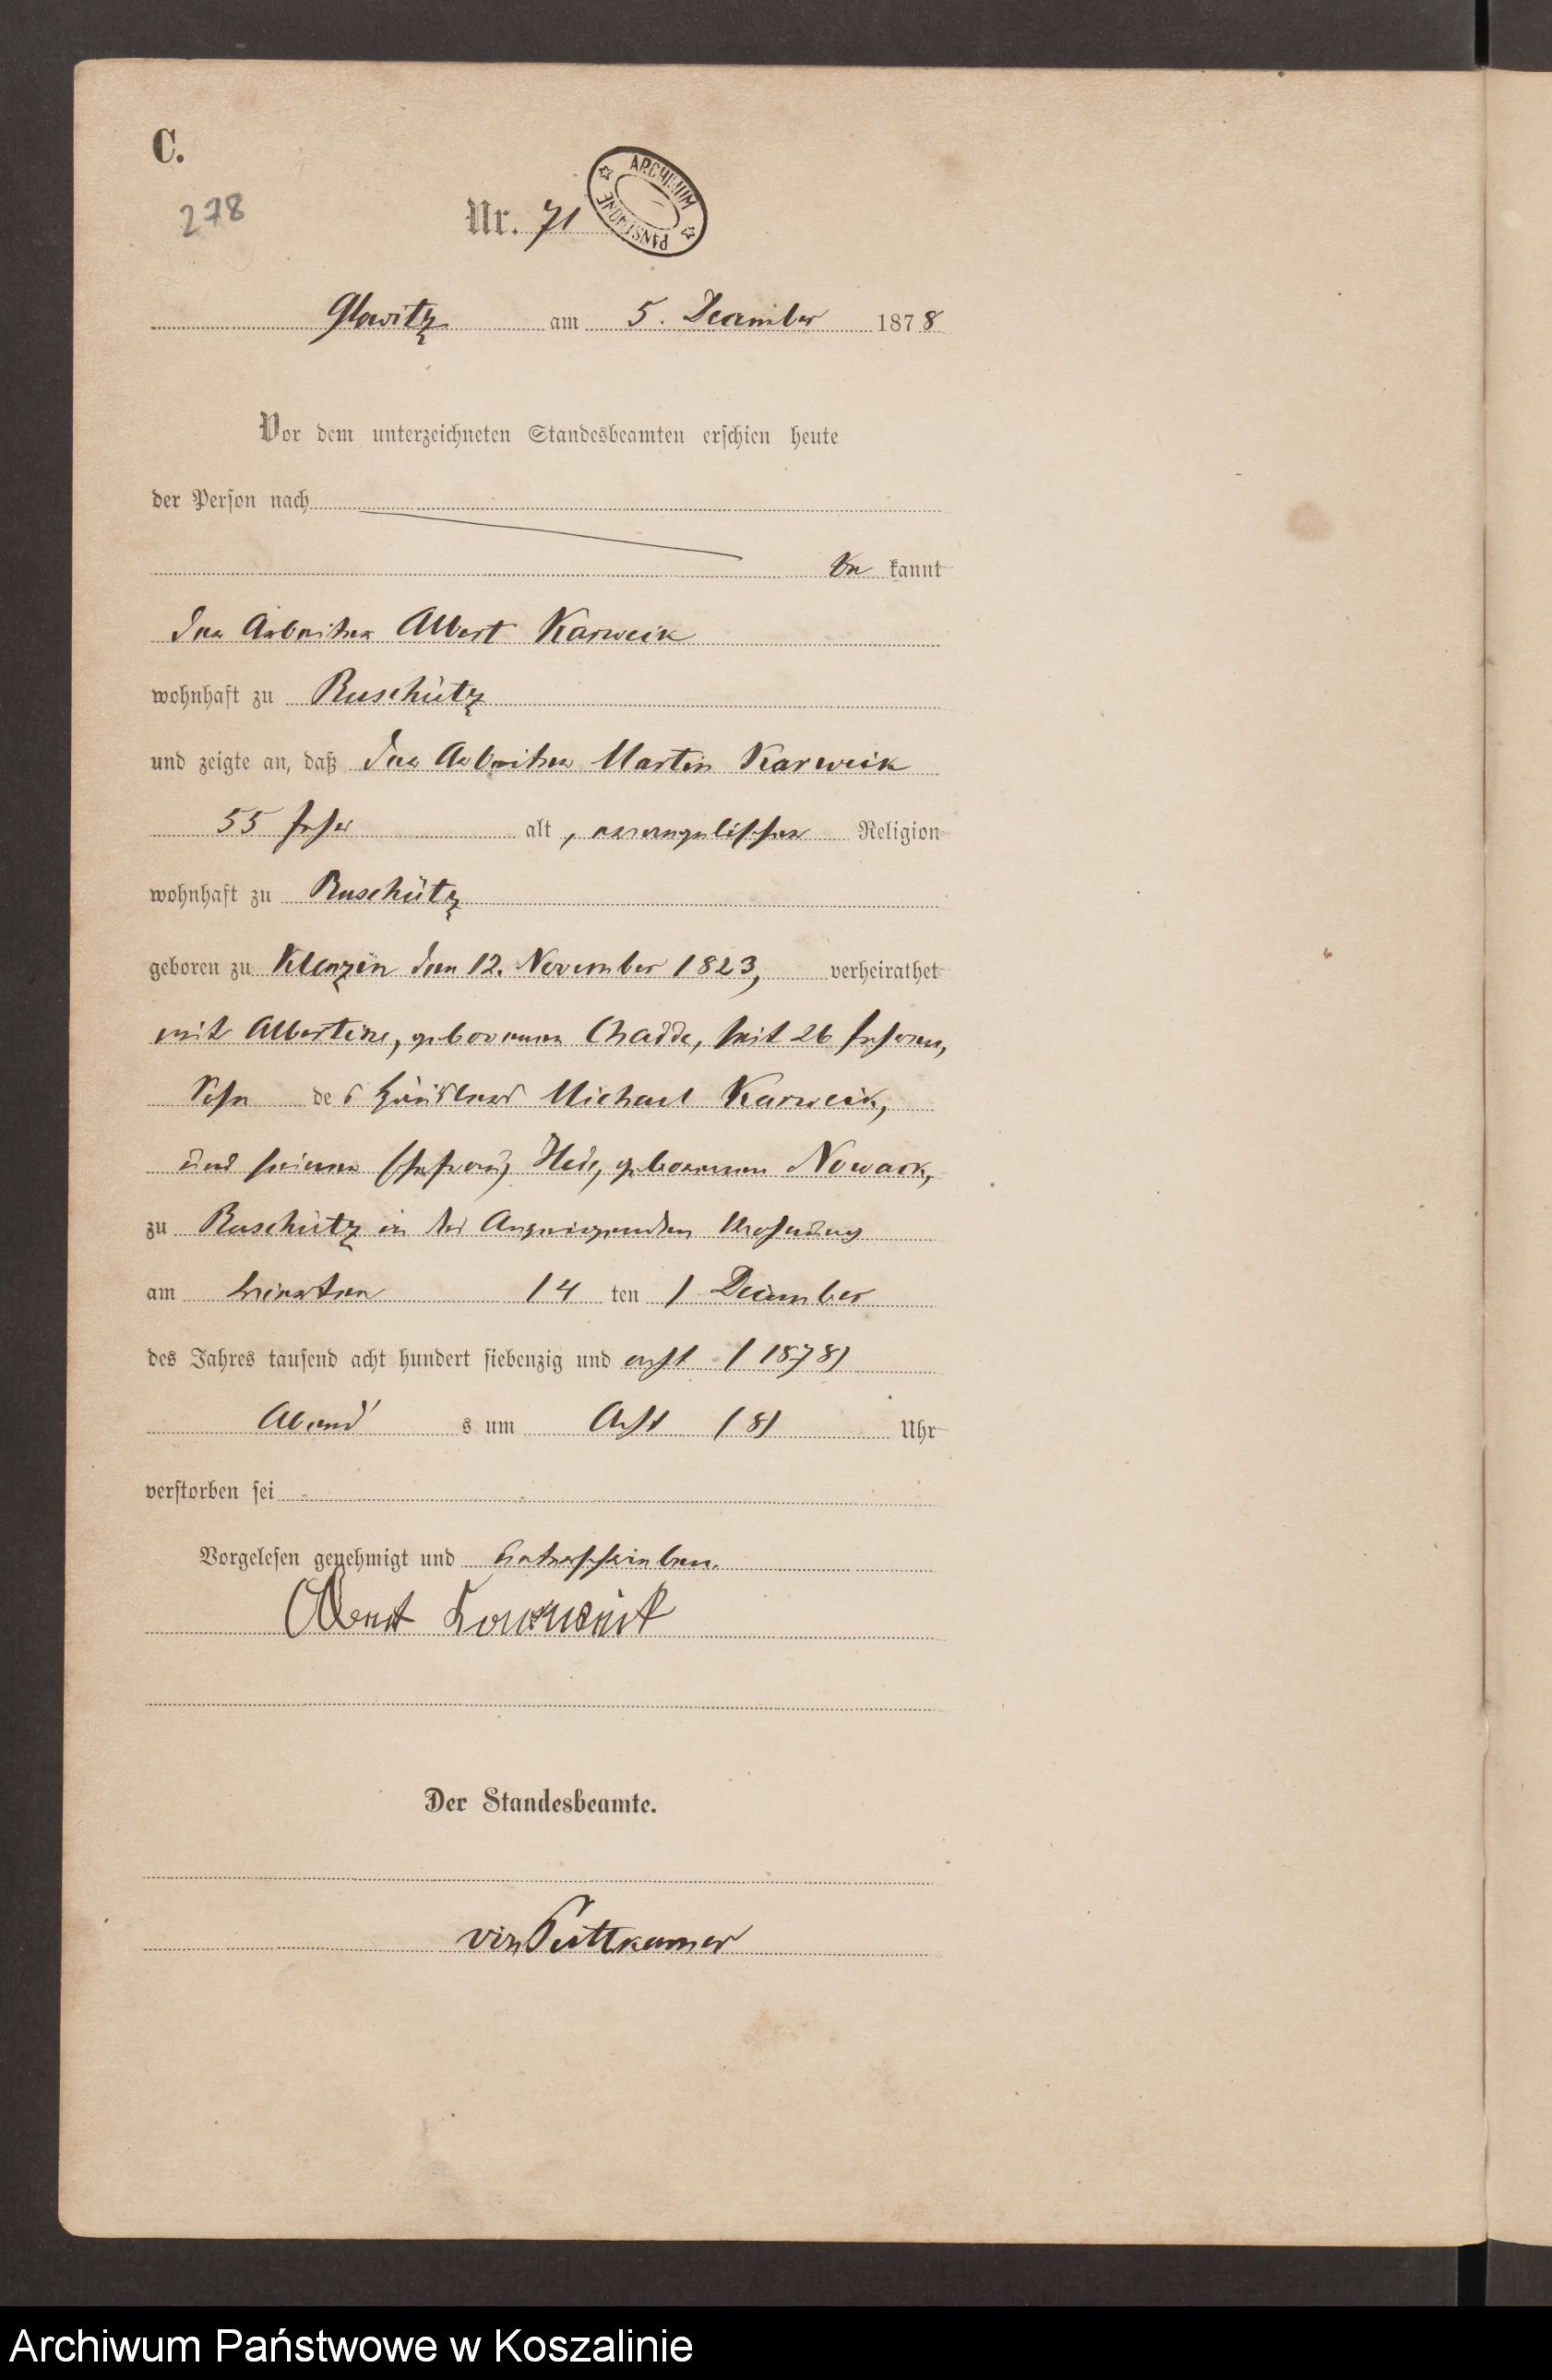 C.
278
Nr. 71
ARCHIWUM PAŃSTWOWE
Glowitz am 5. December 1878
Vor dem unterzeichneten Standesbeamten erschien heute
der Person nach
be kannt
der Arbeiter Albert Karweik
wohnhaft zu Ruschütz
und zeigte an, daß der Arbeiter Martin Karweik
55 Jahr alt, evangelischer Religion
wohnhaft zu Ruschütz
geboren zu Klenzin den 12. November 1823, verheirathet
mit Albertine, geborenen Chadde, seit 26 Jahren,
Sohn des Häuslers Michael Karweik,
und seiner Ehefrau geborenen Nowack,
zu Ruschütz in des Anzeigenden Wohnung
am vierten /4 ten / December
des Jahres tausend acht hundert siebenzig und acht / 1878/
Abend s um Acht /8/ Uhr
verstorben sei
Vorgelesen genehmigt und unterschrieben.
Albert Karweik
Der Standesbeamte.
von Puttkamer
Archiwum Państwowe w Koszalinie